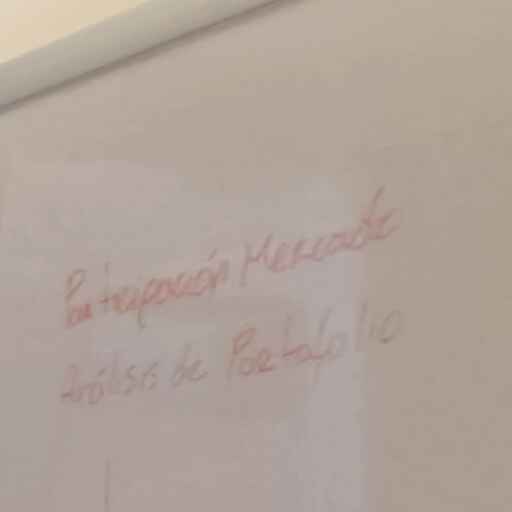 Participación Mercado
Análisis de Portafolio